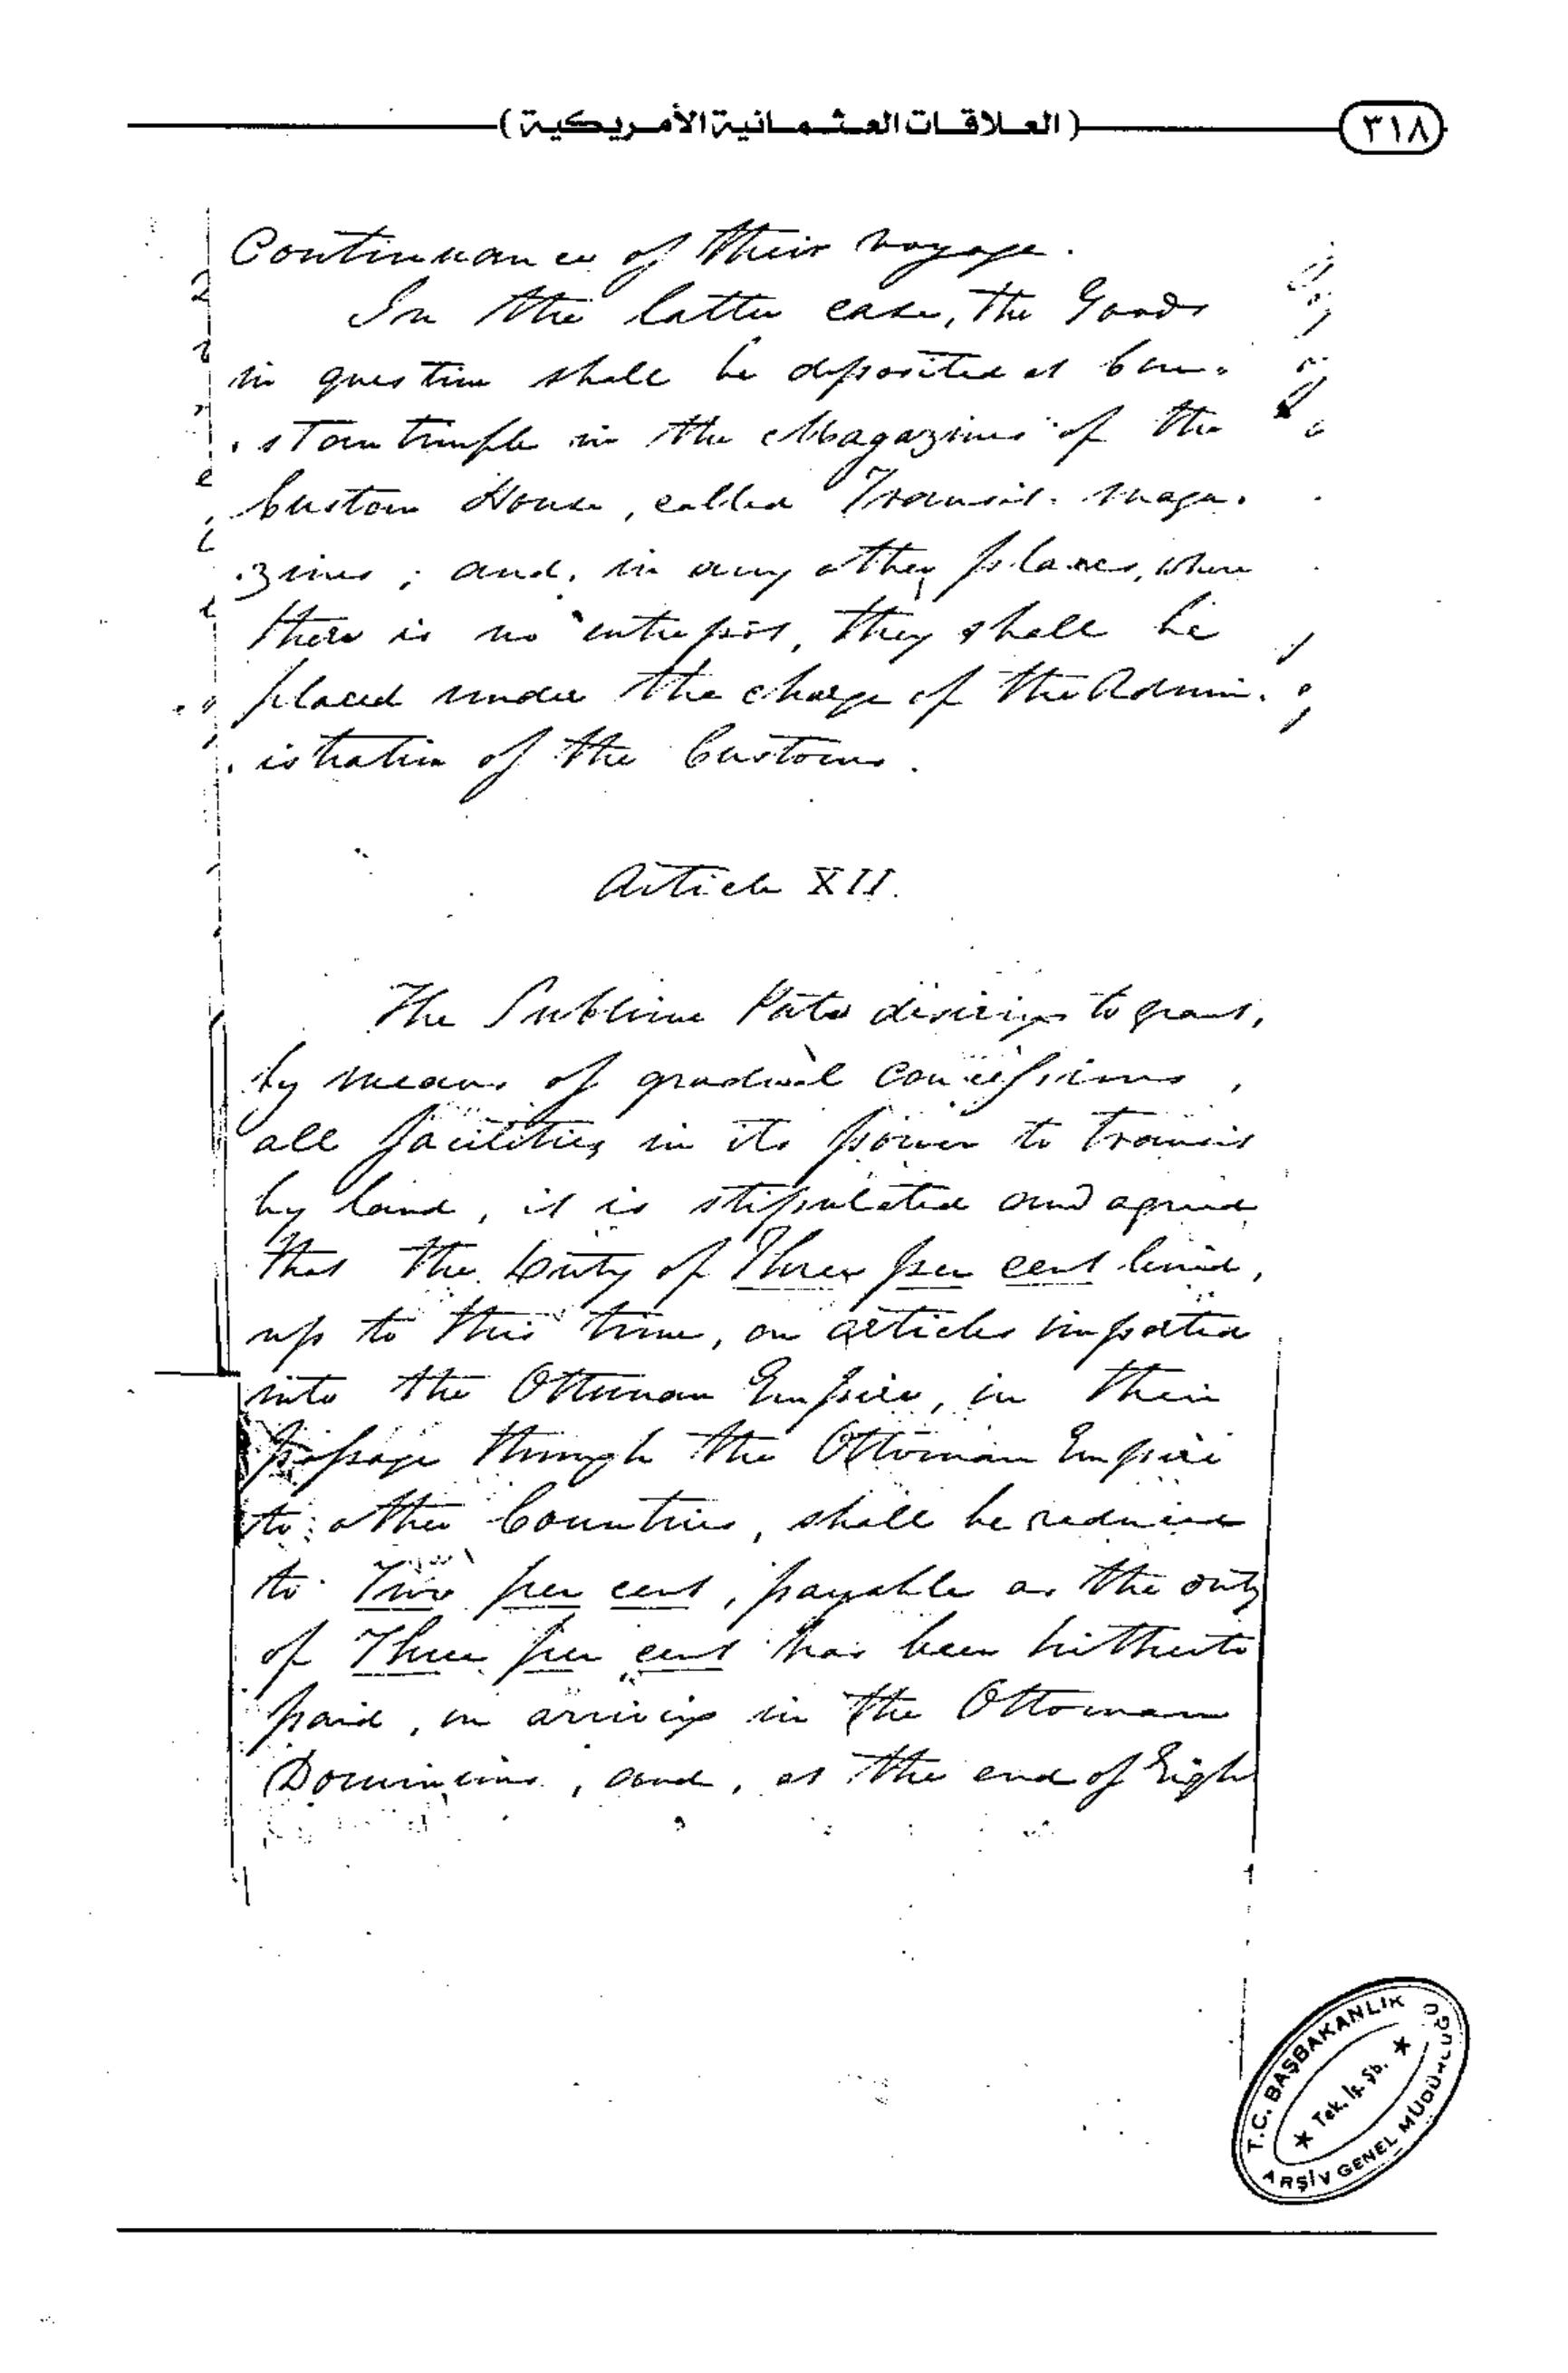 (العلاقات العثمانية الأمريكية)
٣١٨
Continuance of their voyage.
In the latter case, the Goods
in question shall be deposited at Con-
-stantinople in the Magazines of the
Custom House, called Transit-maga-
-zines; and, in any other places, where
there is no entrepôt, they shall be
placed under the charge of the Admin-
-istration of the Customs.
Article XII.
The Sublime Porte desiring to grant,
by means of gradual concessions,
all facilities in its power to transit
by land, it is stipulated and agreed
that the Duty of Three per cent levied,
up to this time, on articles imported
into the Ottoman Empire, in their
passage through the Ottoman Empire
to other Countries, shall be reduced
to Two per cent, payable as the duty
of Three per cent has been hitherto
paid, on arriving in the Ottoman
Dominions, and, at the end of Eight
T.C. BAŞBAKANLIK
Tek. İş. Şb.
ARŞİV GENEL MÜDÜRLÜĞÜ